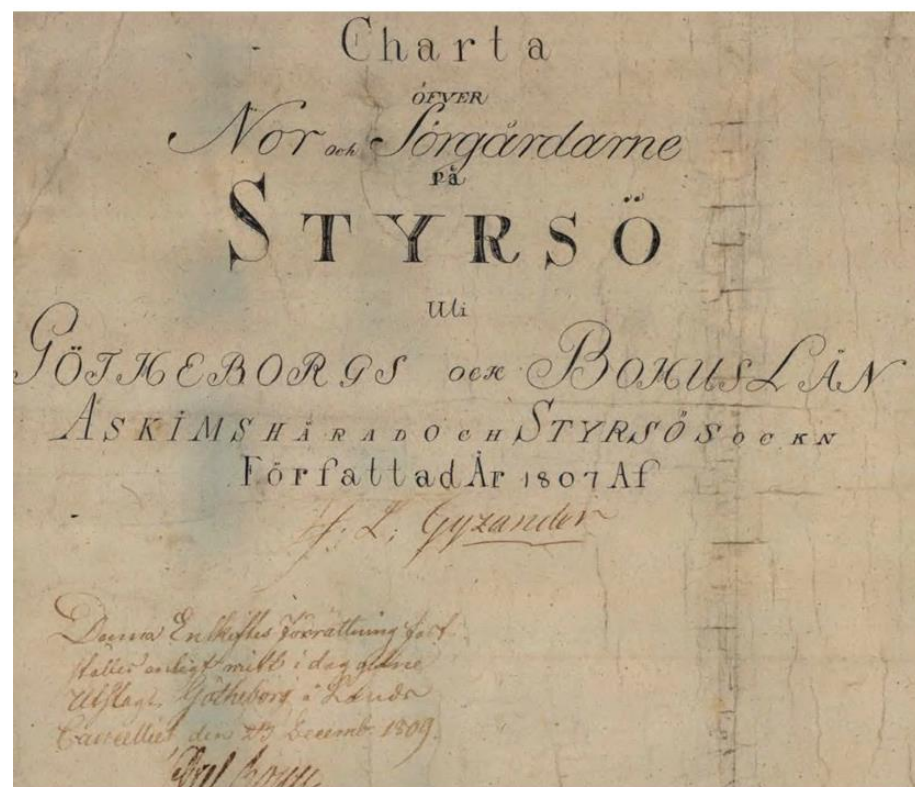 Charta
ÖFVER
Nor och Sörgårdarne
På
STYRSÖ
Uti
GÖTHEBORGS OCH BOHUS LÄN
ASKIMS HÄRAD OCH STYRSÖ SOCKN
Författad År 1807 Af
L: Gyzander
Denna Enskiftes Förrättning fast
ställes enligt mitt i dag gifne
Utslag, Götheborg å Lands
Cancelliet den Decemb. 1809.